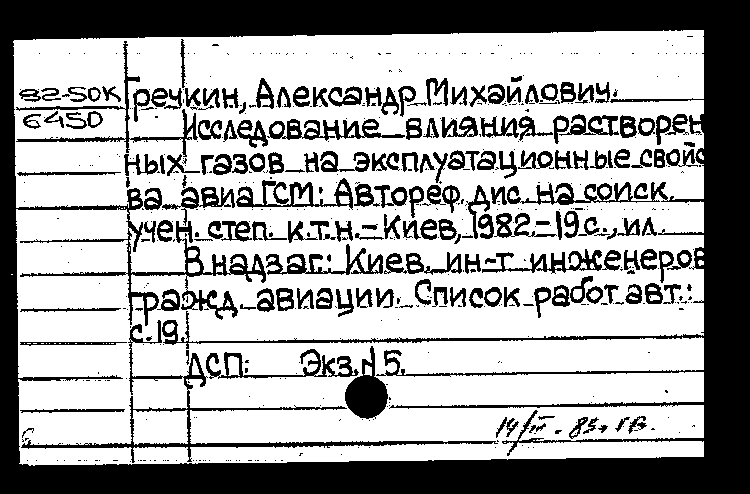 82-50К Гречкин, Александр Михайлович.
6450 Исследование влияния растворен
ных газов на эксплуатационные свойс
ва авиа ГСМ: Автореф. дис. на соиск.
учен. степ. к.т.н. – Киев, 1982. – 19 с., ил.
В надзаг.: Киев. ин-т инженеров
гражд. авиации. Список работ авт.:
с. 19.
ДСП: Экз. № 5.
14/III. 83. ГВ.